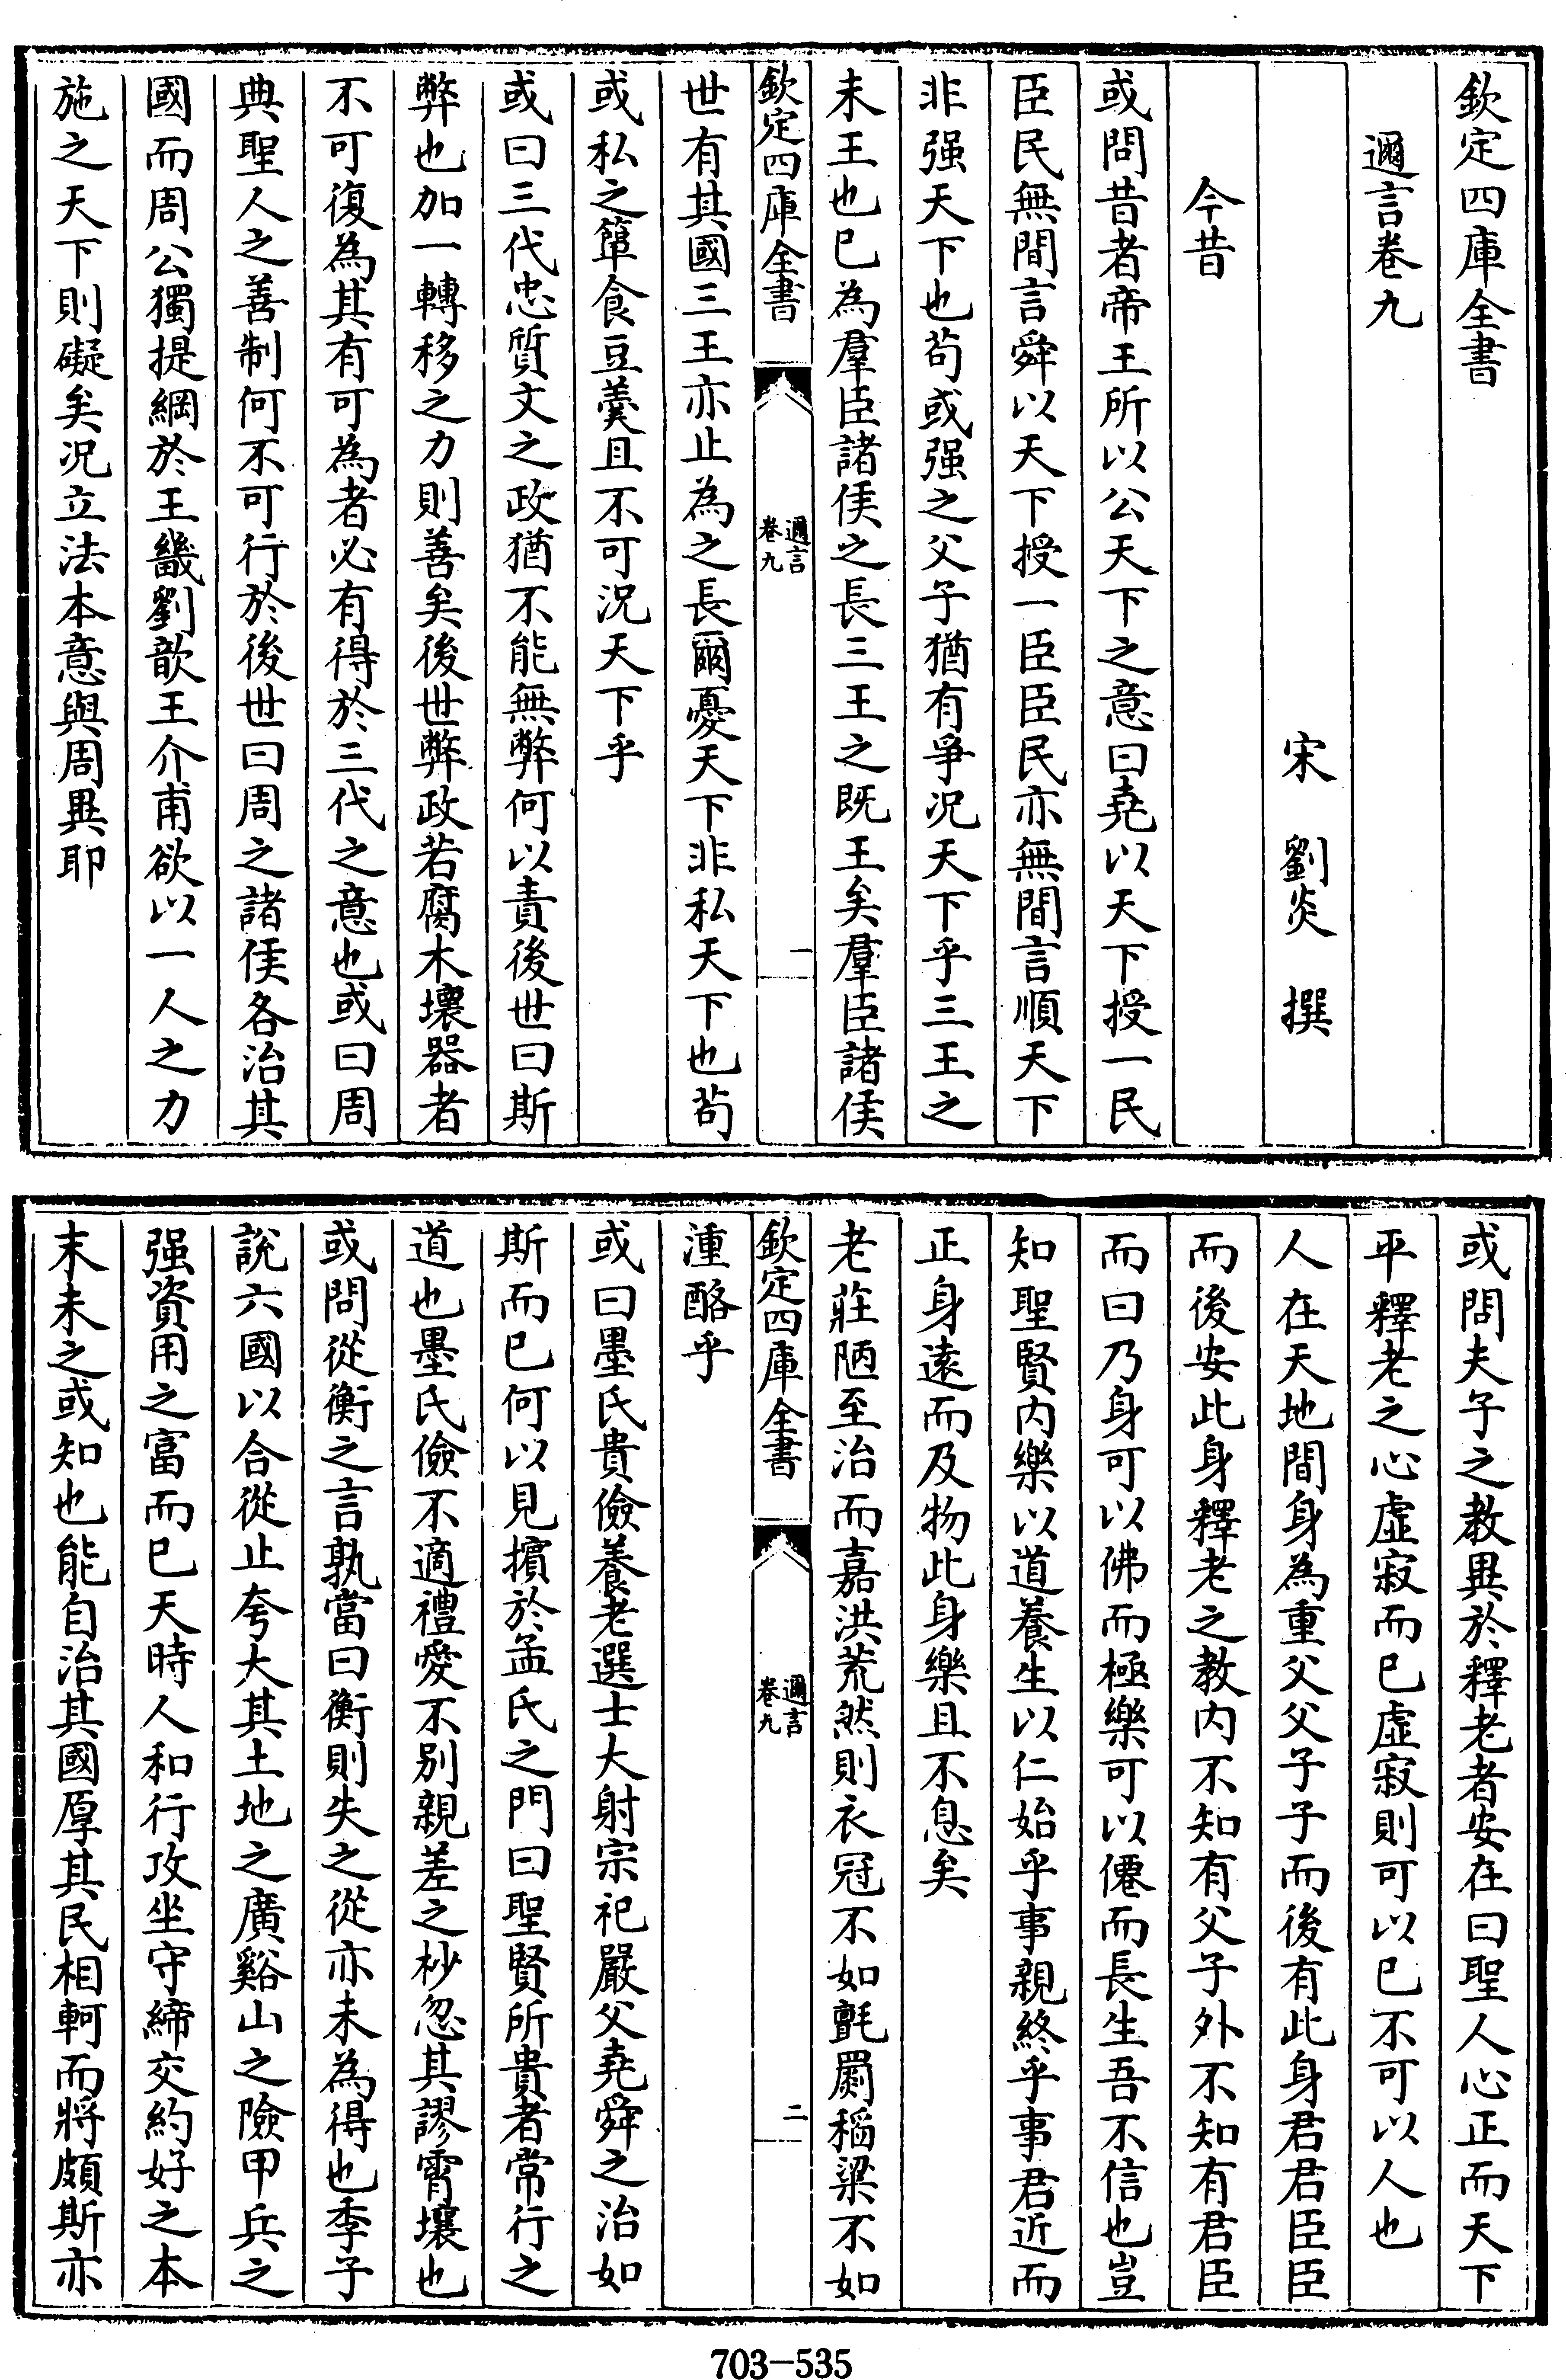 欽定四庫全書
邇言卷九
宋　劉炎　撰
今昔
或問昔者帝王所以公天下之意曰堯以天下授一民
臣民無間言舜以天下授一臣臣民亦無間言順天下
非强天下也茍或强之父子猶有爭况天下乎三王之
未王也已為羣臣諸侯之長三王之既王矣羣臣諸侯
欽定四庫全書
邇言
卷九
一
世有其國三王亦止為之長爾憂天下非私天下也茍
或私之簞食豆羹且不可況天下乎
或曰三代忠質文之政猶不能無弊何以責後世曰斯
弊也加一轉移之力則善矣後世弊政若腐木壞器者
不可復為其有可為者必有得於三代之意也或曰周
典聖人之善制何不可行於後世曰周之諸侯各治其
國而周公獨提綱於王畿劉歆王介甫欲以一人之力
施之天下則礙矣況立法本意與周異耶
或問夫子之教異於釋老者安在曰聖人心正而天下
平釋老之心虛寂而已虛寂則可以已不可以人也
人在天地間身為重父父子子而後有此身君君臣臣
而後安此身釋老之教内不知有父子外不知有君臣
而曰乃身可以佛而極樂可以僊而長生吾不信也豈
知聖賢内樂以道養生以仁始乎事親終乎事君近而
正身遠而及物此身樂且不息矣
老莊陋至治而嘉洪荒然則衣冠不如氈罽稻粱不如
欽定四庫全書
邇言
卷九
二
湩酪乎
或曰墨氏貴儉養老選士大射宗祀嚴父堯舜之治如
斯而已何以見擯於孟氏之門曰聖賢所貴者常行之
道也墨氏儉不適禮愛不别親差之杪忽其謬霄壤也
或問從衡之言孰當曰衡則失之從亦未為得也季子
說六國以合從止夸大其土地之廣谿山之險甲兵之
强資用之富而已天時人和行攻坐守締交約好之本
末未之或知也能自治其國厚其民相軻而將頗斯亦
703-535